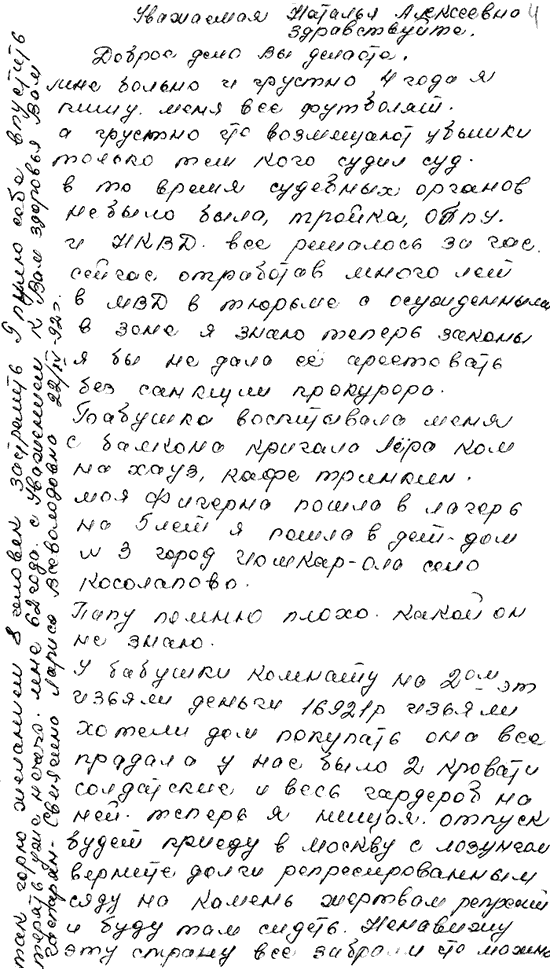 Уважаемая Наталья Алексеевна
4
здравствуйте.
Доброе дело Вы делаете.
мне больно и грустно 4 года я
пишу. меня все футболят.
а грустно что возмещают убытки
только тем кого судил суд.
в то время судебных органов
небыло была, тройка, ОГПУ.
и НКВД. все решалось за час.
сейчас отработав много лет
в МВД в тюрьме с осужденными
в зоне я знаю теперь законы
я бы не дала её арестовать
без санкции прокурора.
Бабушка воспитывала меня
с балкона кричала Лёра ком
на хауз, кафе тринкен.
моя фигерна пошла в лагерь
на 5 лет я пошла в дет-дом
н 3 город Йошкар-ола село
Косолапово.
Папу помню плохо. Какой он
не знаю.
У бабушки комнату на 2ом эт
изъяли деньги 16921р изъяли
хотели дом покупать она все
прадала у нас было 2 кровати
солдатские и весь гардероб на
ней. теперь я нищая. отпуск
будет приеду в москву с лозунгом
верните долги репресированным
сяду на камень жертвам репрессий
и буду там сидеть. Ненавижу
эту страну все забрали что можно
так горю желанием 8 человек застрелить Я пулю себе впустить
терять уже нечего. мне 62 года. с Уважением к Вам здоровья Вам
Гаспарян-Свиягина Лариса Всеволодовна 22/IV-92г.